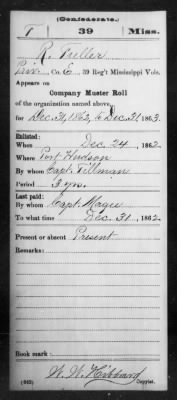 (Confederate.)
T 39 Miss.
R. Teeller
Co. C, 39 Reg't Mississippi Vols.
Appears on
Company Muster Roll
of the organization named above,
for Dec. 31, 1862, to Dec. 31, 1863.
Enlisted:
When Dec. 24, 1862
Where Port Hudson
By whom Capt. Tillman
Period 3 yrs.
Last paid:
By whom Capt. Magee
To what time Dec. 31, 1862
Present or absent Present
Remarks:
Book mark:
W. W. Hibbard
(642) Copyist.